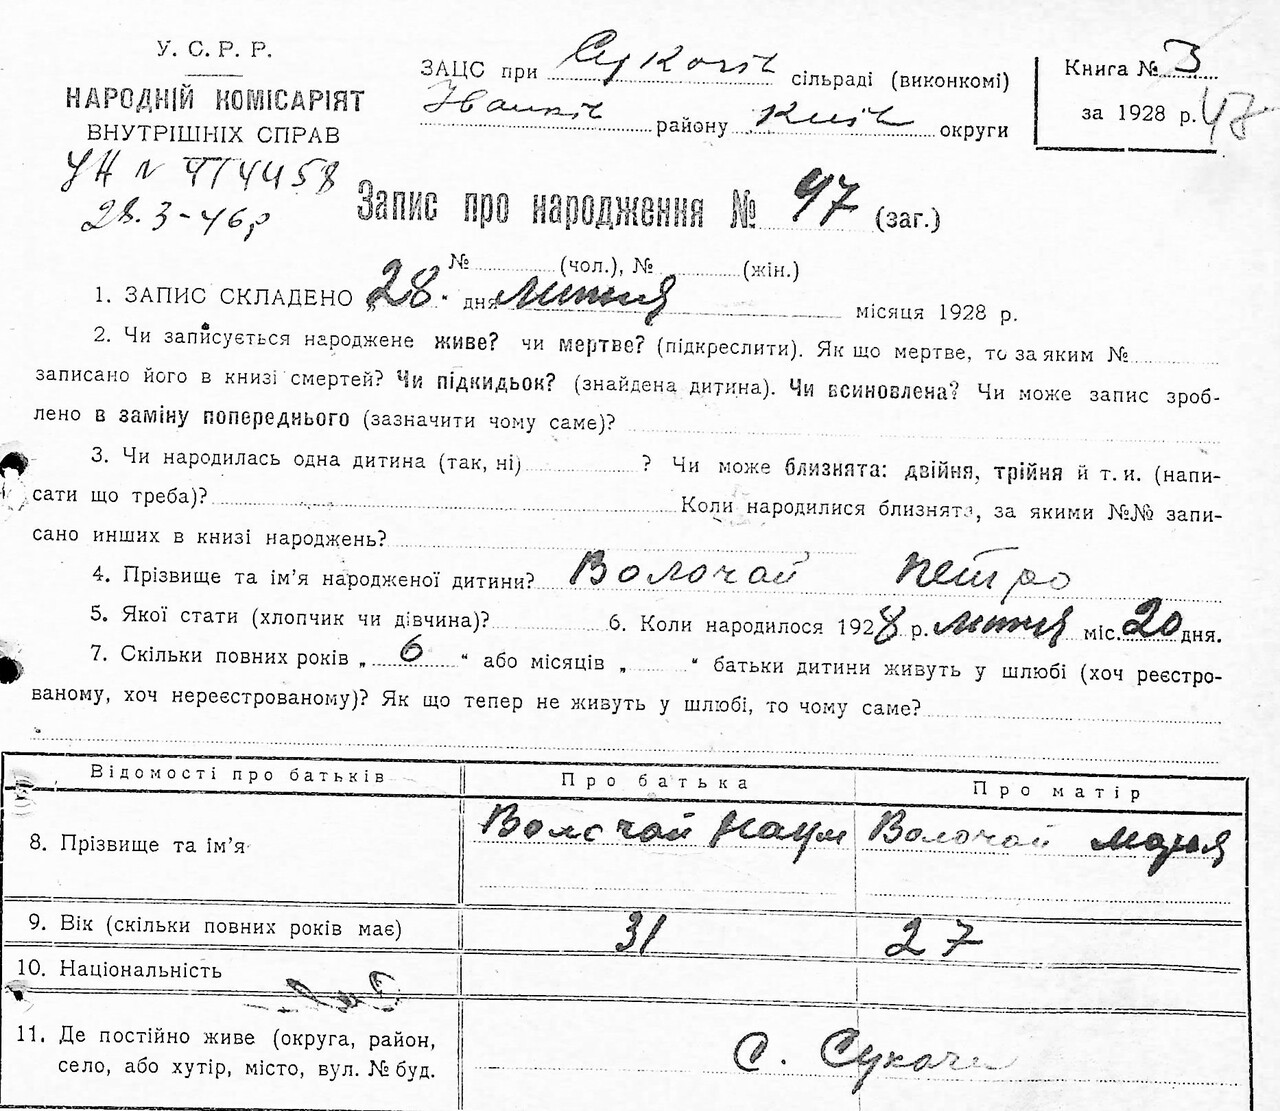 У. С. Р. Р.
НАРОДНІЙ КОМІСАРІЯТ
ВНУТРІШНІХ СПРАВ
28.3-46р
ЗАЦС при сільраді (виконкомі)
району Київ округи
Книга № 3
за 1928 р. 47
Запис про народження № 97 (заг.)
№ (чол.), № (жін.)
1. ЗАПИС СКЛАДЕНО „28“ дня лютня місяця 1928 р.
2. Чи записується народжене живе? чи мертве? (підкреслити). Як що мертве, то за яким №
записано його в книзі смертей? Чи підкидьок? (знайдена дитина). Чи всиновлена? Чи може запис зроб-
лено в заміну попереднього (зазначити чому саме)?
3. Чи народилась одна дитина (так, ні) ? Чи може близнята: двійня, трійня й т. и. (напи-
сати що треба)? Коли народилися близнята, за якими №№ запи-
сано инших в книзі народжень?
4. Прізвище та ім’я народженої дитини? Волочай Петро
5. Якої стати (хлопчик чи дівчина)? 6. Коли народилося 1928 р. лютня міс. 20 дня.
7. Скільки повних років „ 6 “ або місяців „ “ батьки дитини живуть у шлюбі (хоч реєстро-
ваному, хоч нереєстрованому)? Як що тепер не живуть у шлюбі, то чому саме?
Відомості про батьків Про батька Про матір
8. Прізвище та ім’я Волочай Наум Волочай Марія
9. Вік (скільки повних років має) 31 27
10. Національність
11. Де постійно живе (округа, район,
село, або хутір, місто, вул. № буд.
с. Сукачи